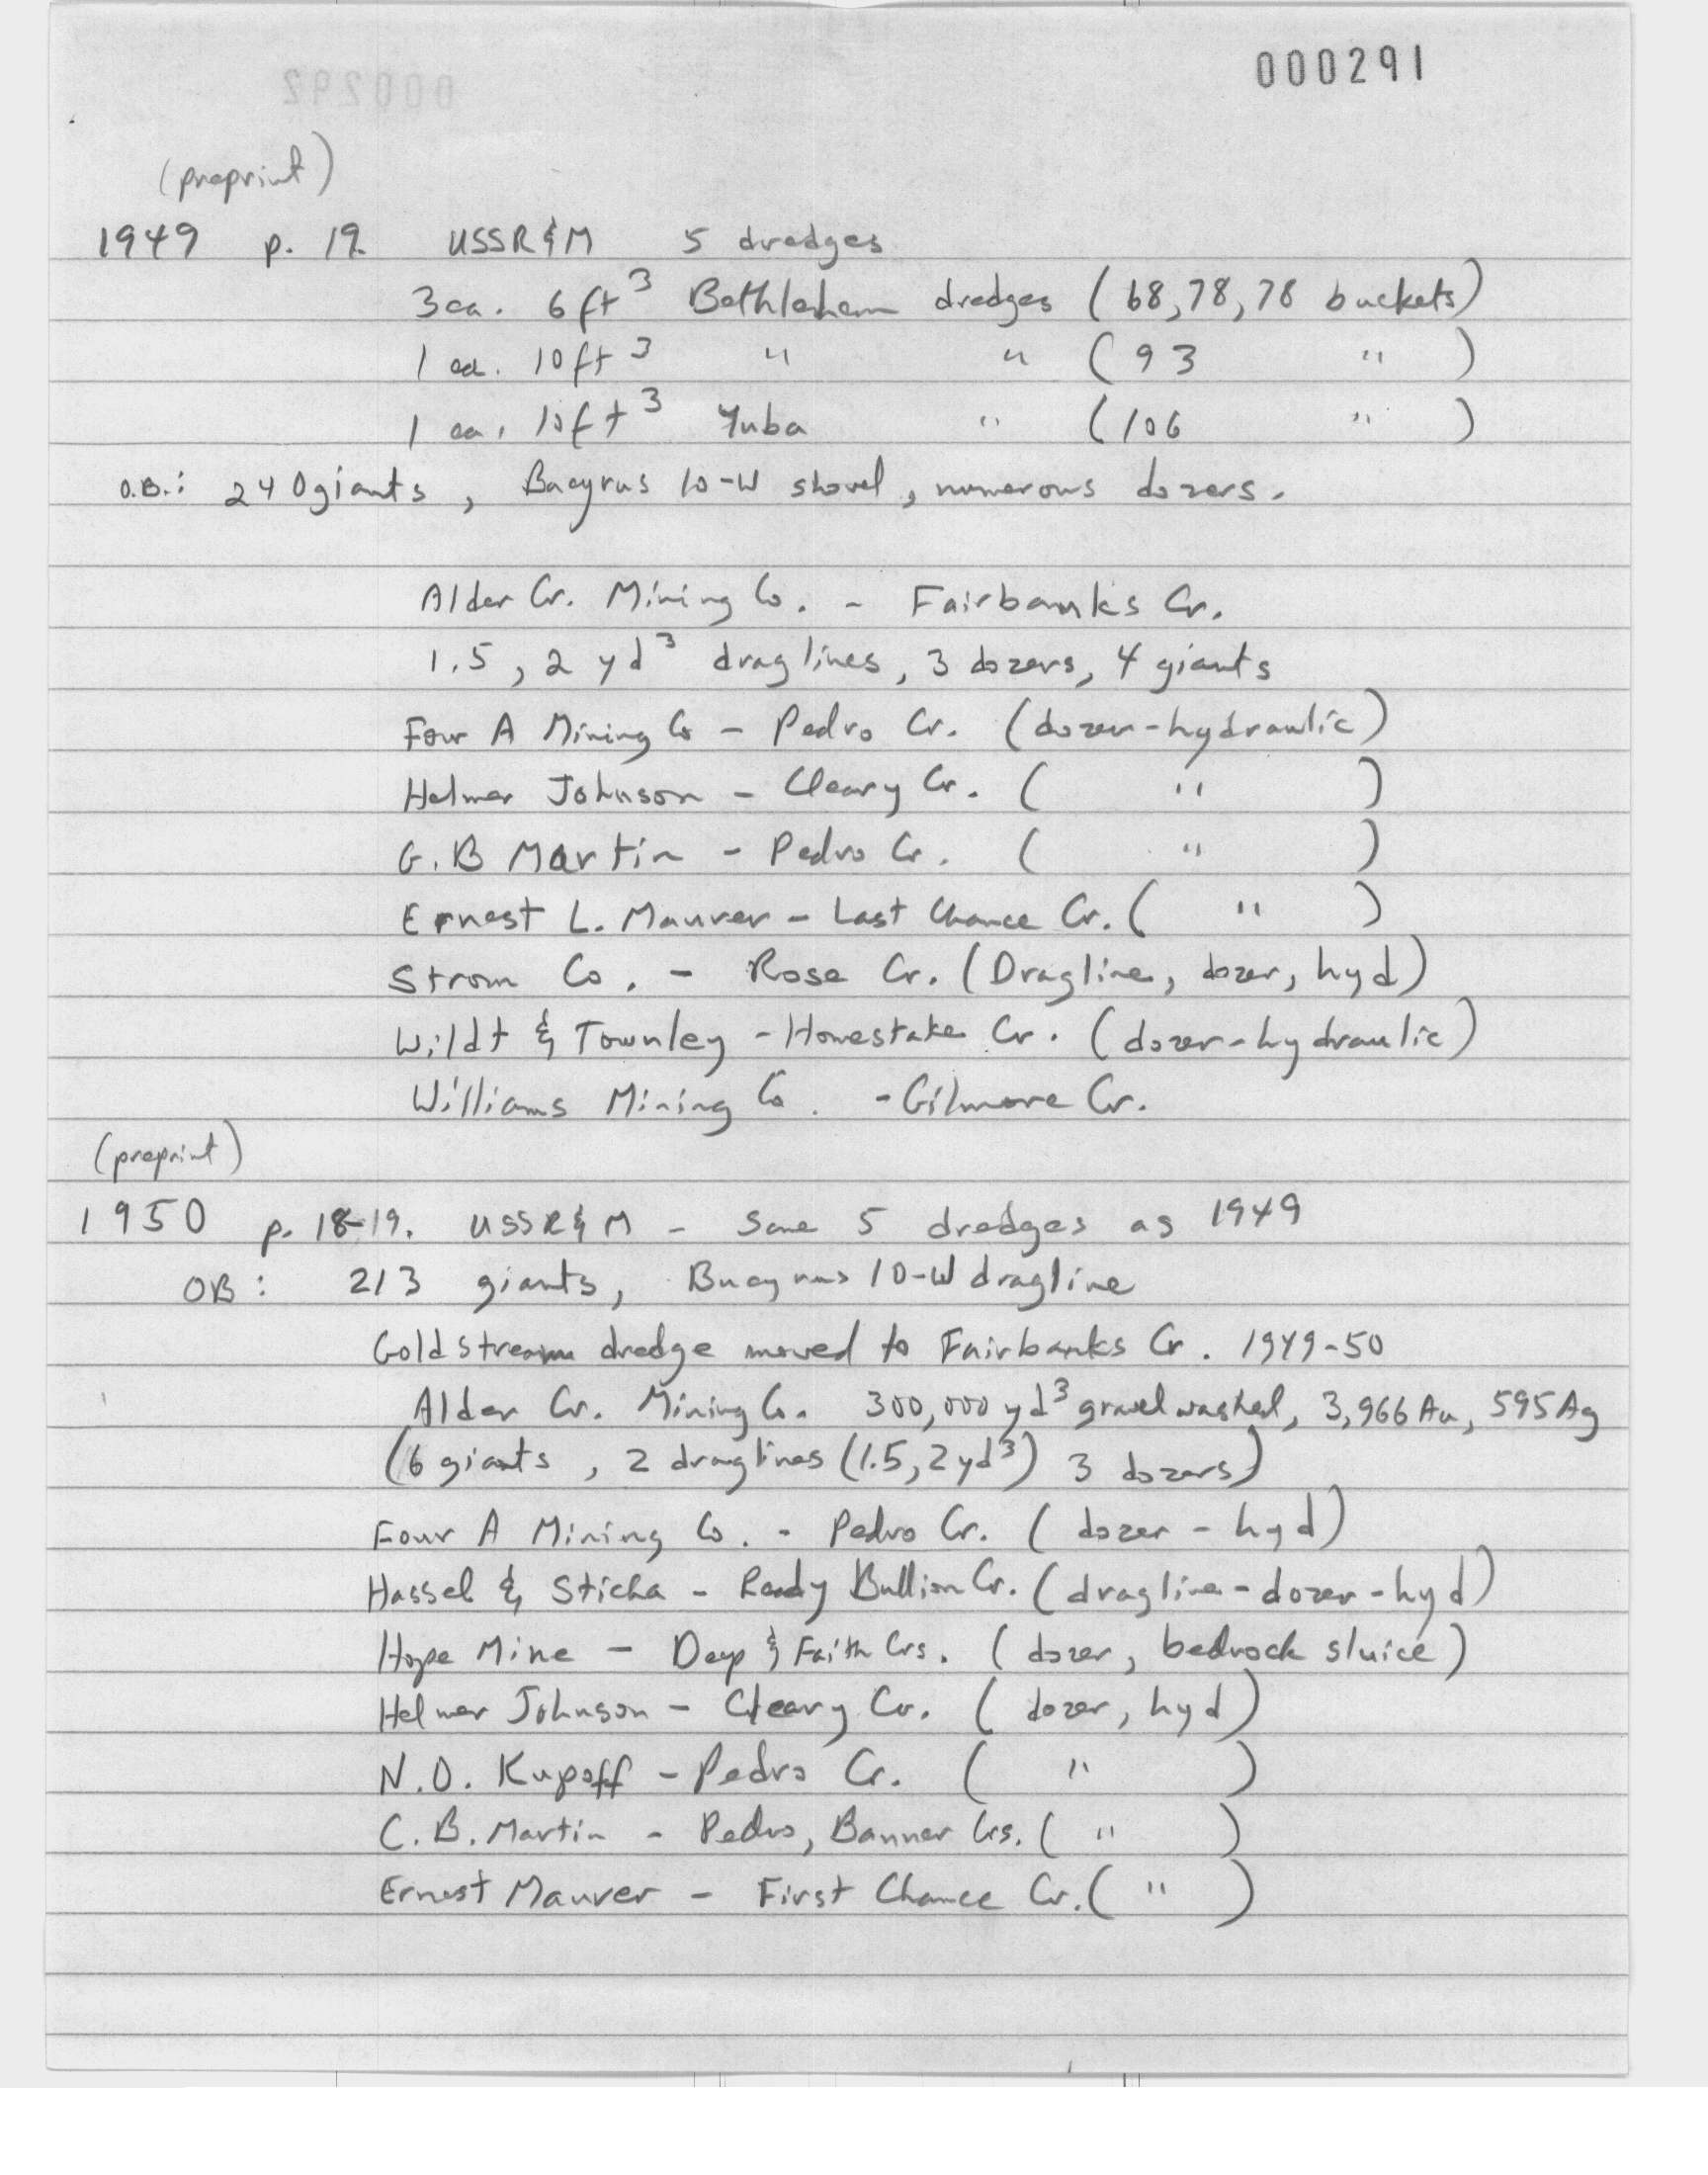 000291
000292
(preprint)
1949 p. 19. USSR&M 5 dredges
3 ea. 6 ft³ Bethlehem dredges (68, 78, 78 buckets)
1 ea. 10 ft³ " " (93 " )
1 ea. 10 ft³ Yuba " (106 " )
O.B.: 240 giants, Bucyrus 10-W shovel, numerous dozers.
Alder Cr. Mining Co. - Fairbanks Cr.
1.5, 2 yd³ draglines, 3 dozers, 4 giants
Four A Mining Co - Pedro Cr. (dozer-hydraulic)
Helmer Johnson - Cleary Cr. ( " )
G.B Martin - Pedro Cr. ( " )
Ernest L. Maurer - Last Chance Cr. ( " )
Strom Co. - Rose Cr. (Dragline, dozer, hyd)
Wildt & Townley - Homestake Cr. (dozer-hydraulic)
Williams Mining Co. - Gilmore Cr.
(preprint)
1950 p. 18-19. USSR&M - Same 5 dredges as 1949
OB: 213 giants, Bucyrus 10-W dragline
Goldstream dredge moved to Fairbanks Cr. 1949-50
Alder Cr. Mining Co. 300,000 yd³ gravel washed, 3,966 Au, 595 Ag
(6 giants, 2 draglines (1.5, 2 yd³) 3 dozers)
Four A Mining Co. - Pedro Cr. (dozer - hyd)
Hassel & Sticha - Ready Bullion Cr. (dragline-dozer-hyd)
Hope Mine - Deep & Faith Crs. (dozer, bedrock sluice)
Helmer Johnson - Cleary Cr. (dozer, hyd)
N.O. Kupoff - Pedro Cr. ( " )
C.B. Martin - Pedro, Banner Crs. ( " )
Ernest Maurer - First Chance Cr. ( " )